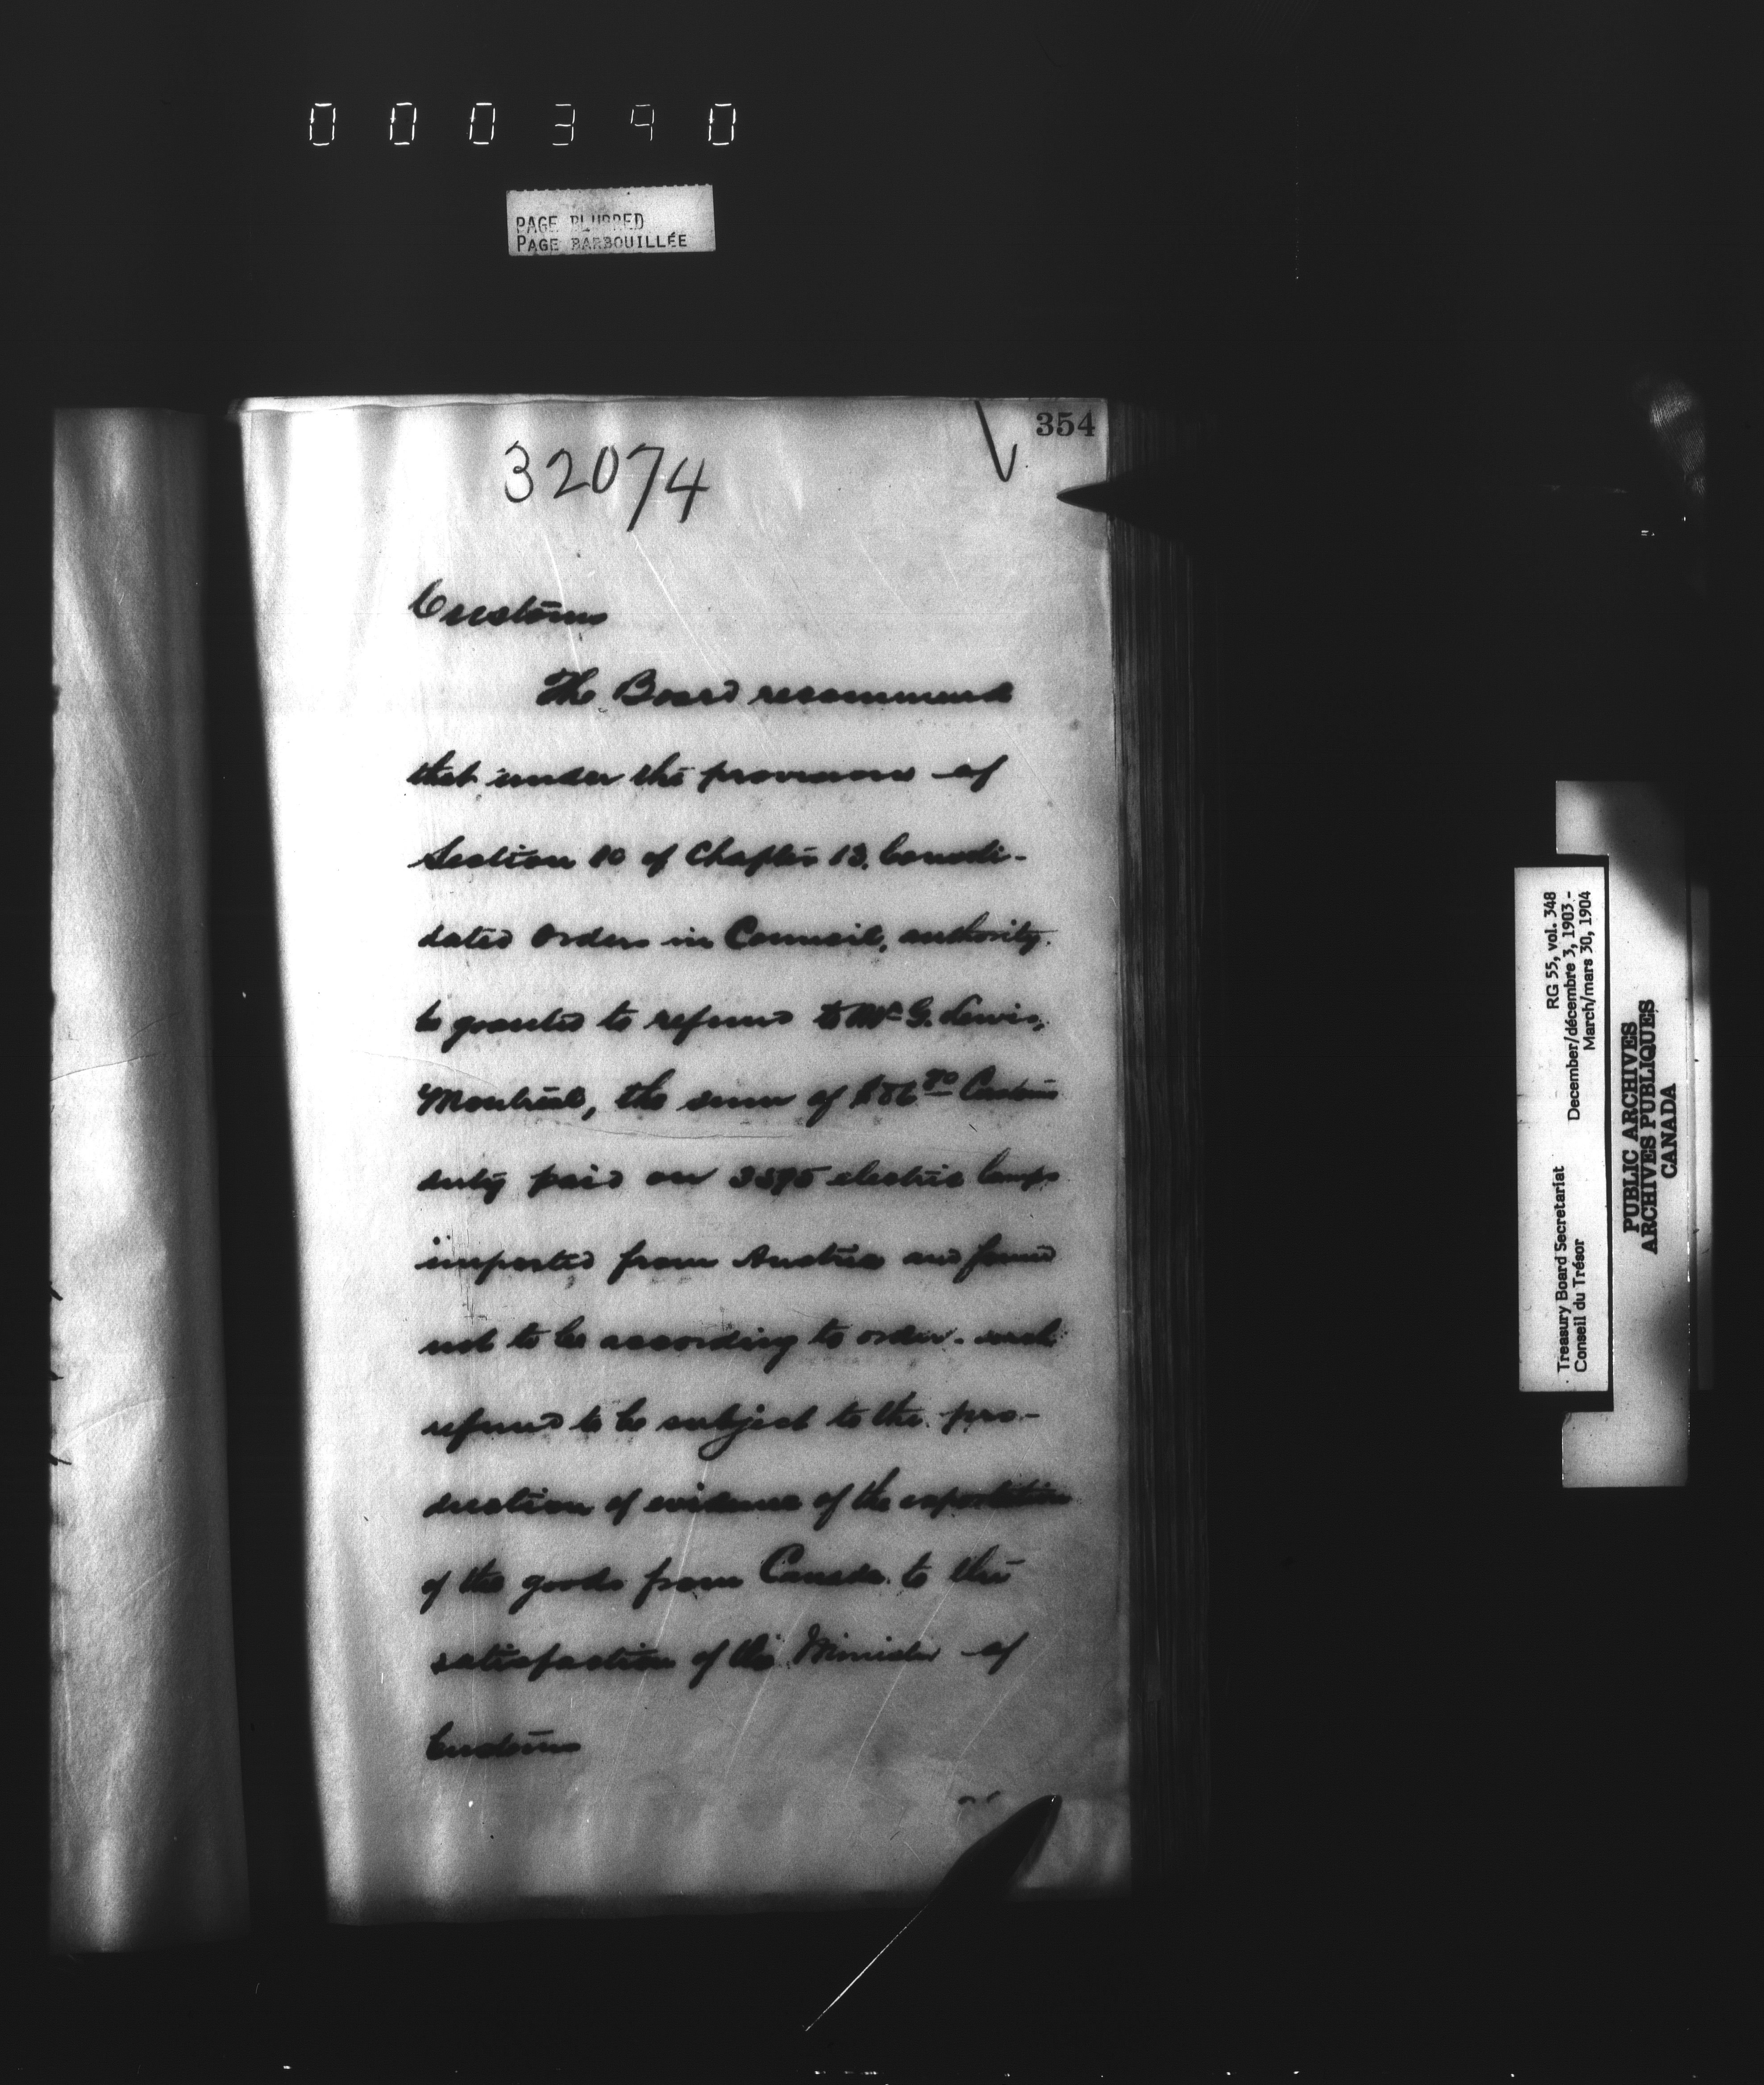 000390
PAGE BLURRED
PAGE BARBOUILLÉE
354
32074
Customs
The Board recommend
that under the provisions of
Section 10 of Chapter 13, Consoli-
dated Orders in Council, authority
be granted to refund to Mr G. Lewis,
Montreal, the sum of Customs
duty paid on electric lamps
imported from Austria and found
not to be according to order - such
refund to be subject to the pro-
duction of evidence of the exportation
of the goods from Canada to the
satisfaction of the Minister of
Customs
Treasury Board Secretariat RG 55, vol. 348
Conseil du Trésor December/décembre 3, 1903 -
March/mars 30, 1904
PUBLIC ARCHIVES
ARCHIVES PUBLIQUES
CANADA